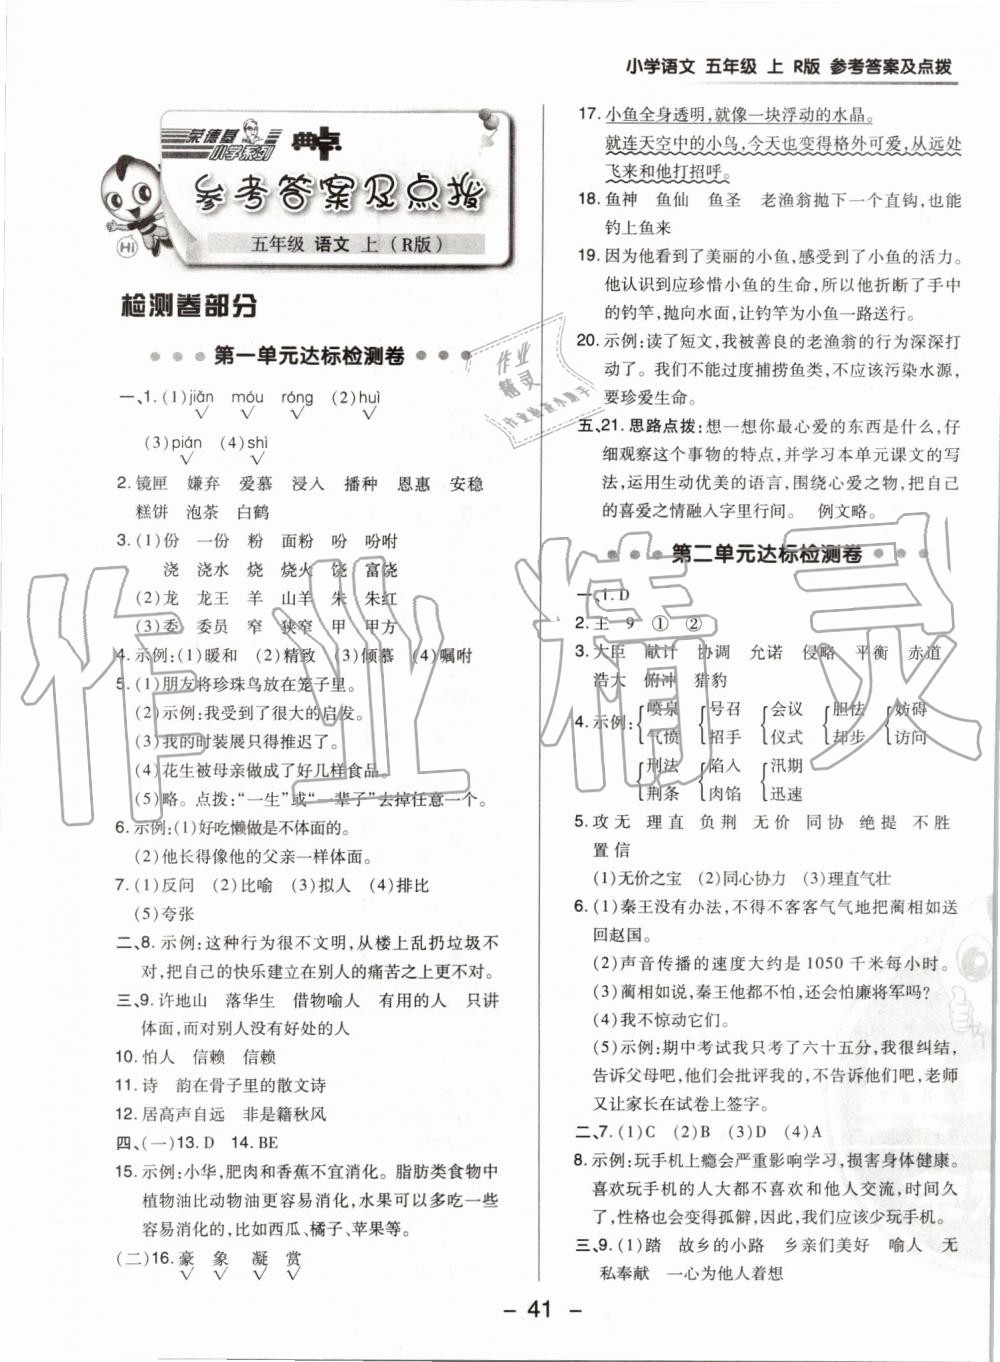 小学语文 五年级 上 R版 参考答案及点拨
荣德基
小学系列
典点
参考答案及点拨
Hi
五年级 语文 上（R版）
检测卷部分
第一单元达标检测卷
一、1.(1)jiǎn móu róng (2)huì
√ √ √
(3)pián (4)shì
√ √
2. 镜匣 嫌弃 爱慕 浸入 播种 恩惠 安稳
糕饼 泡茶 白鹤
3. (1)份 一份 粉 面粉 吩 吩咐
浇 浇水 烧 烧火 饶 富饶
(2)龙 龙王 羊 山羊 朱 朱红
(3)委 委员 窄 狭窄 甲 甲方
4. 示例:(1)暖和 (2)精致 (3)倾慕 (4)嘱咐
5. (1)朋友将珍珠鸟放在笼子里。
(2)示例:我受到了很大的启发。
(3)我的时装展只得推迟了。
(4)花生被母亲做成了好几样食品。
(5)略。点拨:“一生”或“一辈子”去掉任意一个。
6. 示例:(1)好吃懒做是不体面的。
(2)他长得像他的父亲一样体面。
7. (1)反问 (2)比喻 (3)拟人 (4)排比
(5)夸张
二、8. 示例:这种行为很不文明,从楼上乱扔垃圾不
对,把自己的快乐建立在别人的痛苦之上更不对。
三、9. 许地山 落华生 借物喻人 有用的人 只讲
体面,而对别人没有好处的人
10. 怕人 信赖 信赖
11. 诗 韵在骨子里的散文诗
12. 居高声自远 非是籍秋风
四、(一)13. D 14. BE
15. 示例:小华,肥肉和香蕉不宜消化。脂肪类食物中
植物油比动物油更容易消化,水果可以多吃一些
容易消化的,比如西瓜、橘子、苹果等。
(二)16. 豪 象 凝 赏
√ √ √ √
17. 小鱼全身透明,就像一块浮动的水晶。
就连天空中的小鸟,今天也变得格外可爱,从远处
飞来和他打招呼。
18. 鱼神 鱼仙 鱼圣 老渔翁抛下一个直钩,也能
钓上鱼来
19. 因为他看到了美丽的小鱼,感受到了小鱼的活力。
他认识到应珍惜小鱼的生命,所以他折断了手中
的钓竿,抛向水面,让钓竿为小鱼一路送行。
20. 示例:读了短文,我被善良的老渔翁的行为深深打
动了。我们不能过度捕捞鱼类,不应该污染水源,
要珍爱生命。
五、21. 思路点拨:想一想你最心爱的东西是什么,仔
细观察这个事物的特点,并学习本单元课文的写
法,运用生动优美的语言,围绕心爱之物,把自己
的喜爱之情融入字里行间。 例文略。
第二单元达标检测卷
一、1. D
2. 王 9 ① ②
3. 大臣 献计 协调 允诺 侵略 平衡 赤道
浩大 俯冲 猎豹
4. 示例:{喷泉 气愤 {号召 招手 {会议 仪式 {胆怯 却步 {妨碍 访问
{刑法 荆条 {陷入 肉馅 {汛期 迅速
5. 攻 无 理 直 负 荆 无 价 同 协 绝 提 不 胜
置 信
(1)无价之宝 (2)同心协力 (3)理直气壮
6. (1)秦王没有办法,不得不客客气气地把蔺相如送
回赵国。
(2)声音传播的速度大约是 1050 千米每小时。
(3)蔺相如说,秦王我都不怕,还会怕廉将军吗?
(4)我不惊动它们。
(5)示例:期中考试我只考了六十五分,我很纠结,
告诉父母吧,他们会批评我的,不告诉他们吧,老师
又让家长在试卷上签字。
二、7. (1)C (2)B (3)D (4)A
8. 示例:玩手机上瘾会严重影响学习,损害身体健康。
喜欢玩手机的人大都不喜欢和他人交流,时间久
了,性格也会变得孤僻,因此,我们应该少玩手机。
三、9. (1)踏 故乡的小路 乡亲们美好 喻人 无
私奉献 一心为他人着想
– 41 –
作业精灵
作业
精灵